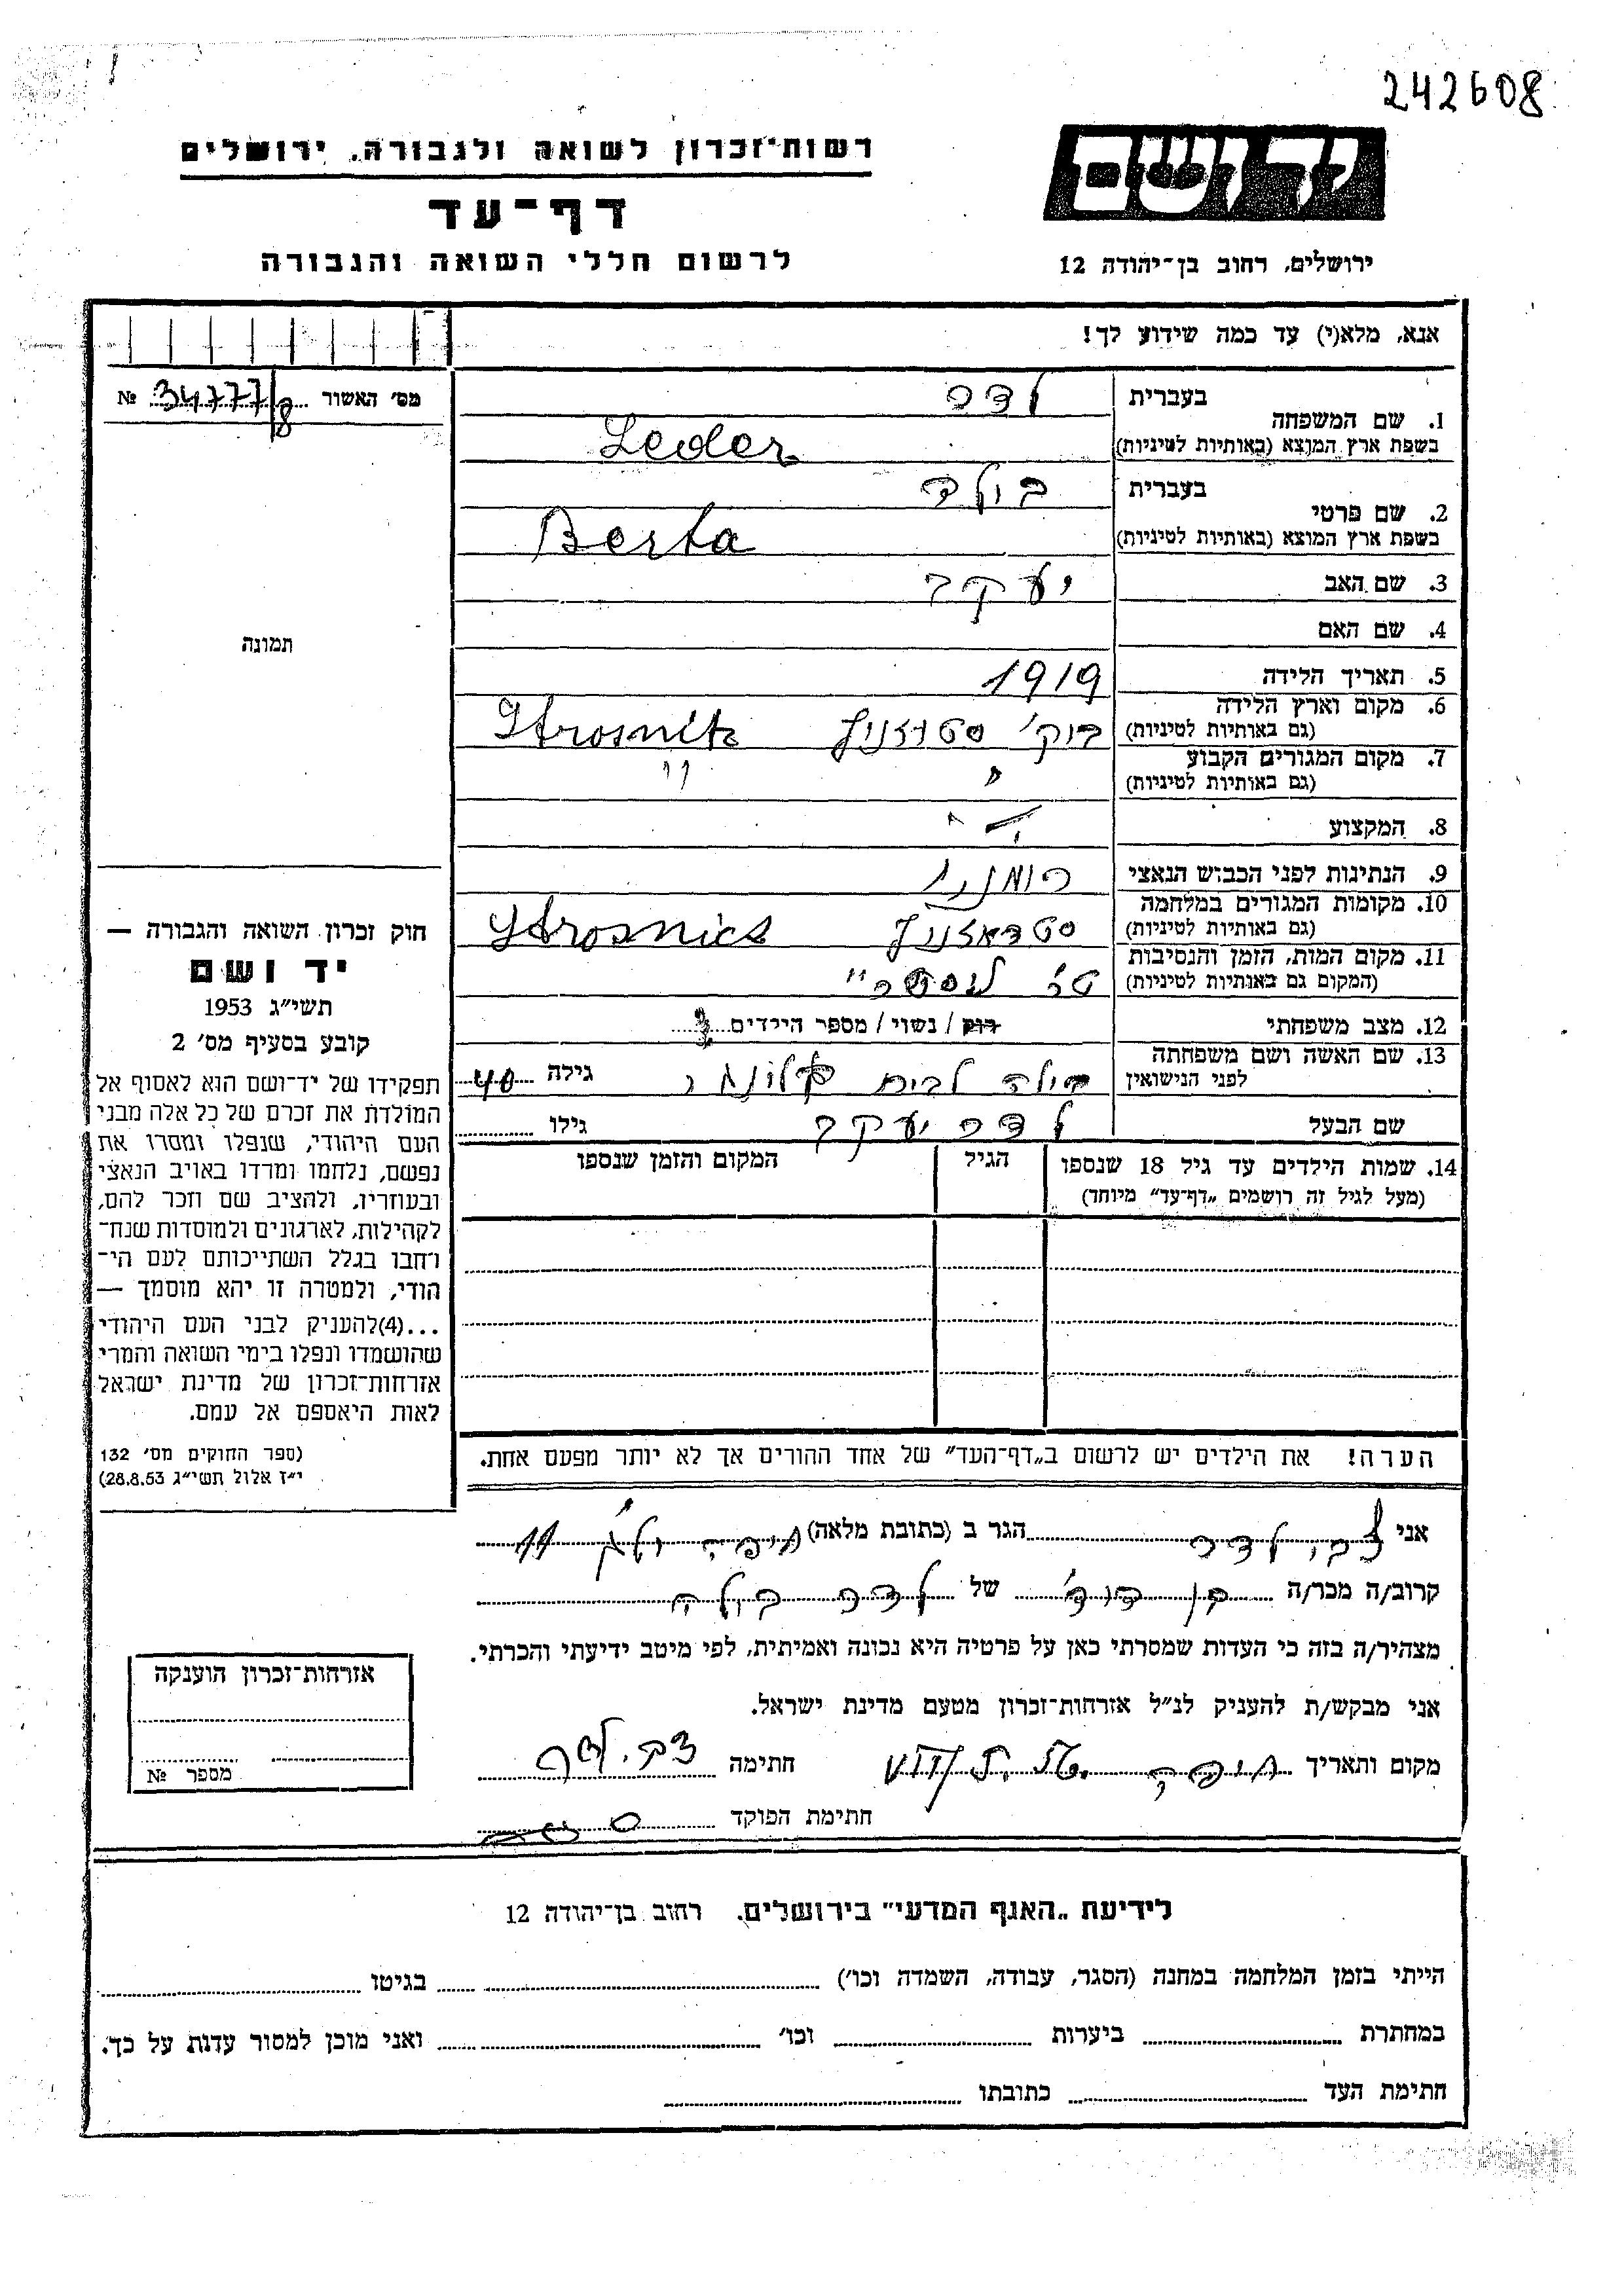 242608
רשות־זכרון לשואה ולגבורה, ירושלים
יד ושם
דף־עד
לרשום חללי השואה והגבורה
ירושלים, רחוב בן־יהודה 12
אנא, מלא(י) עד כמה שידוע לך!
מס׳ האשור 34777/8 №
תמונה
1. שם המשפחה בעברית לדר
בשפת ארץ המוצא (באותיות לטיניות) Leder
2. שם פרטי בעברית
בשפת ארץ המוצא (באותיות לטיניות) Berta
3. שם האב יעקב
4. שם האם
5. תאריך הלידה 1919
6. מקום וארץ הלידה
(גם באותיות לטיניות) בוק׳
7. מקום המגורים הקבוע
(גם באותיות לטיניות) " "
8. המקצוע
9. הנתינות לפני הכבוש הנאצי
10. מקומות המגורים במלחמה
(גם באותיות לטיניות)
11. מקום המות, הזמן והנסיבות
(המקום גם באותיות לטיניות)
12. מצב משפחתי רוק / נשוי / מספר הילדים
13. שם האשה ושם משפחתה
לפני הנישואין לבית גילה 40
שם הבעל לדר יעקב גילו
14. שמות הילדים עד גיל 18 שנספו הגיל המקום והזמן שנספו
(מעל לגיל זה רושמים „דף־עד״ מיוחד)
הערה! את הילדים יש לרשום ב„דף־העד״ של אחד ההורים אך לא יותר מפעם אחת.
חוק זכרון השואה והגבורה —
יד ושם
תשי״ג 1953
קובע בסעיף מס׳ 2
תפקידו של יד־ושם הוא לאסוף אל
המולדת את זכרם של כל אלה מבני
העם היהודי, שנפלו ומסרו את
נפשם, נלחמו ומרדו באויב הנאצי
ובעוזריו, ולהציב שם וזכר להם,
לקהילות, לארגונים ולמוסדות שנח־
רחבו בגלל השתייכותם לעם הי־
הודי, ולמטרה זו יהא מוסמך —
...(4)להעניק לבני העם היהודי
שהושמדו ונפלו בימי השואה והמרי
אזרחות־זכרון של מדינת ישראל
לאות היאספם אל עמם.
(ספר החוקים מס׳ 132
י״ז אלול תשי״ג 28.8.53)
אני צבי לדר הגר ב (כתובת מלאה) חיפה 11
קרוב/ה מכר/ה בן דוד של לדר
מצהיר/ה בזה כי העדות שמסרתי כאן על פרטיה היא נכונה ואמיתית, לפי מיטב ידיעתי והכרתי.
אני מבקש/ת להעניק לנ״ל אזרחות־זכרון מטעם מדינת ישראל.
מקום ותאריך חיפה חתימה
חתימת הפוקד
אזרחות־זכרון הוענקה
מספר №
לידיעת „האגף המדעי״ בירושלים, רחוב בן־יהודה 12
הייתי בזמן המלחמה במחנה (הסגר, עבודה, השמדה וכו׳) בגיטו
במחתרת ביערות וכו׳ ואני מוכן למסור עדות על כך.
חתימת העד כתובתו